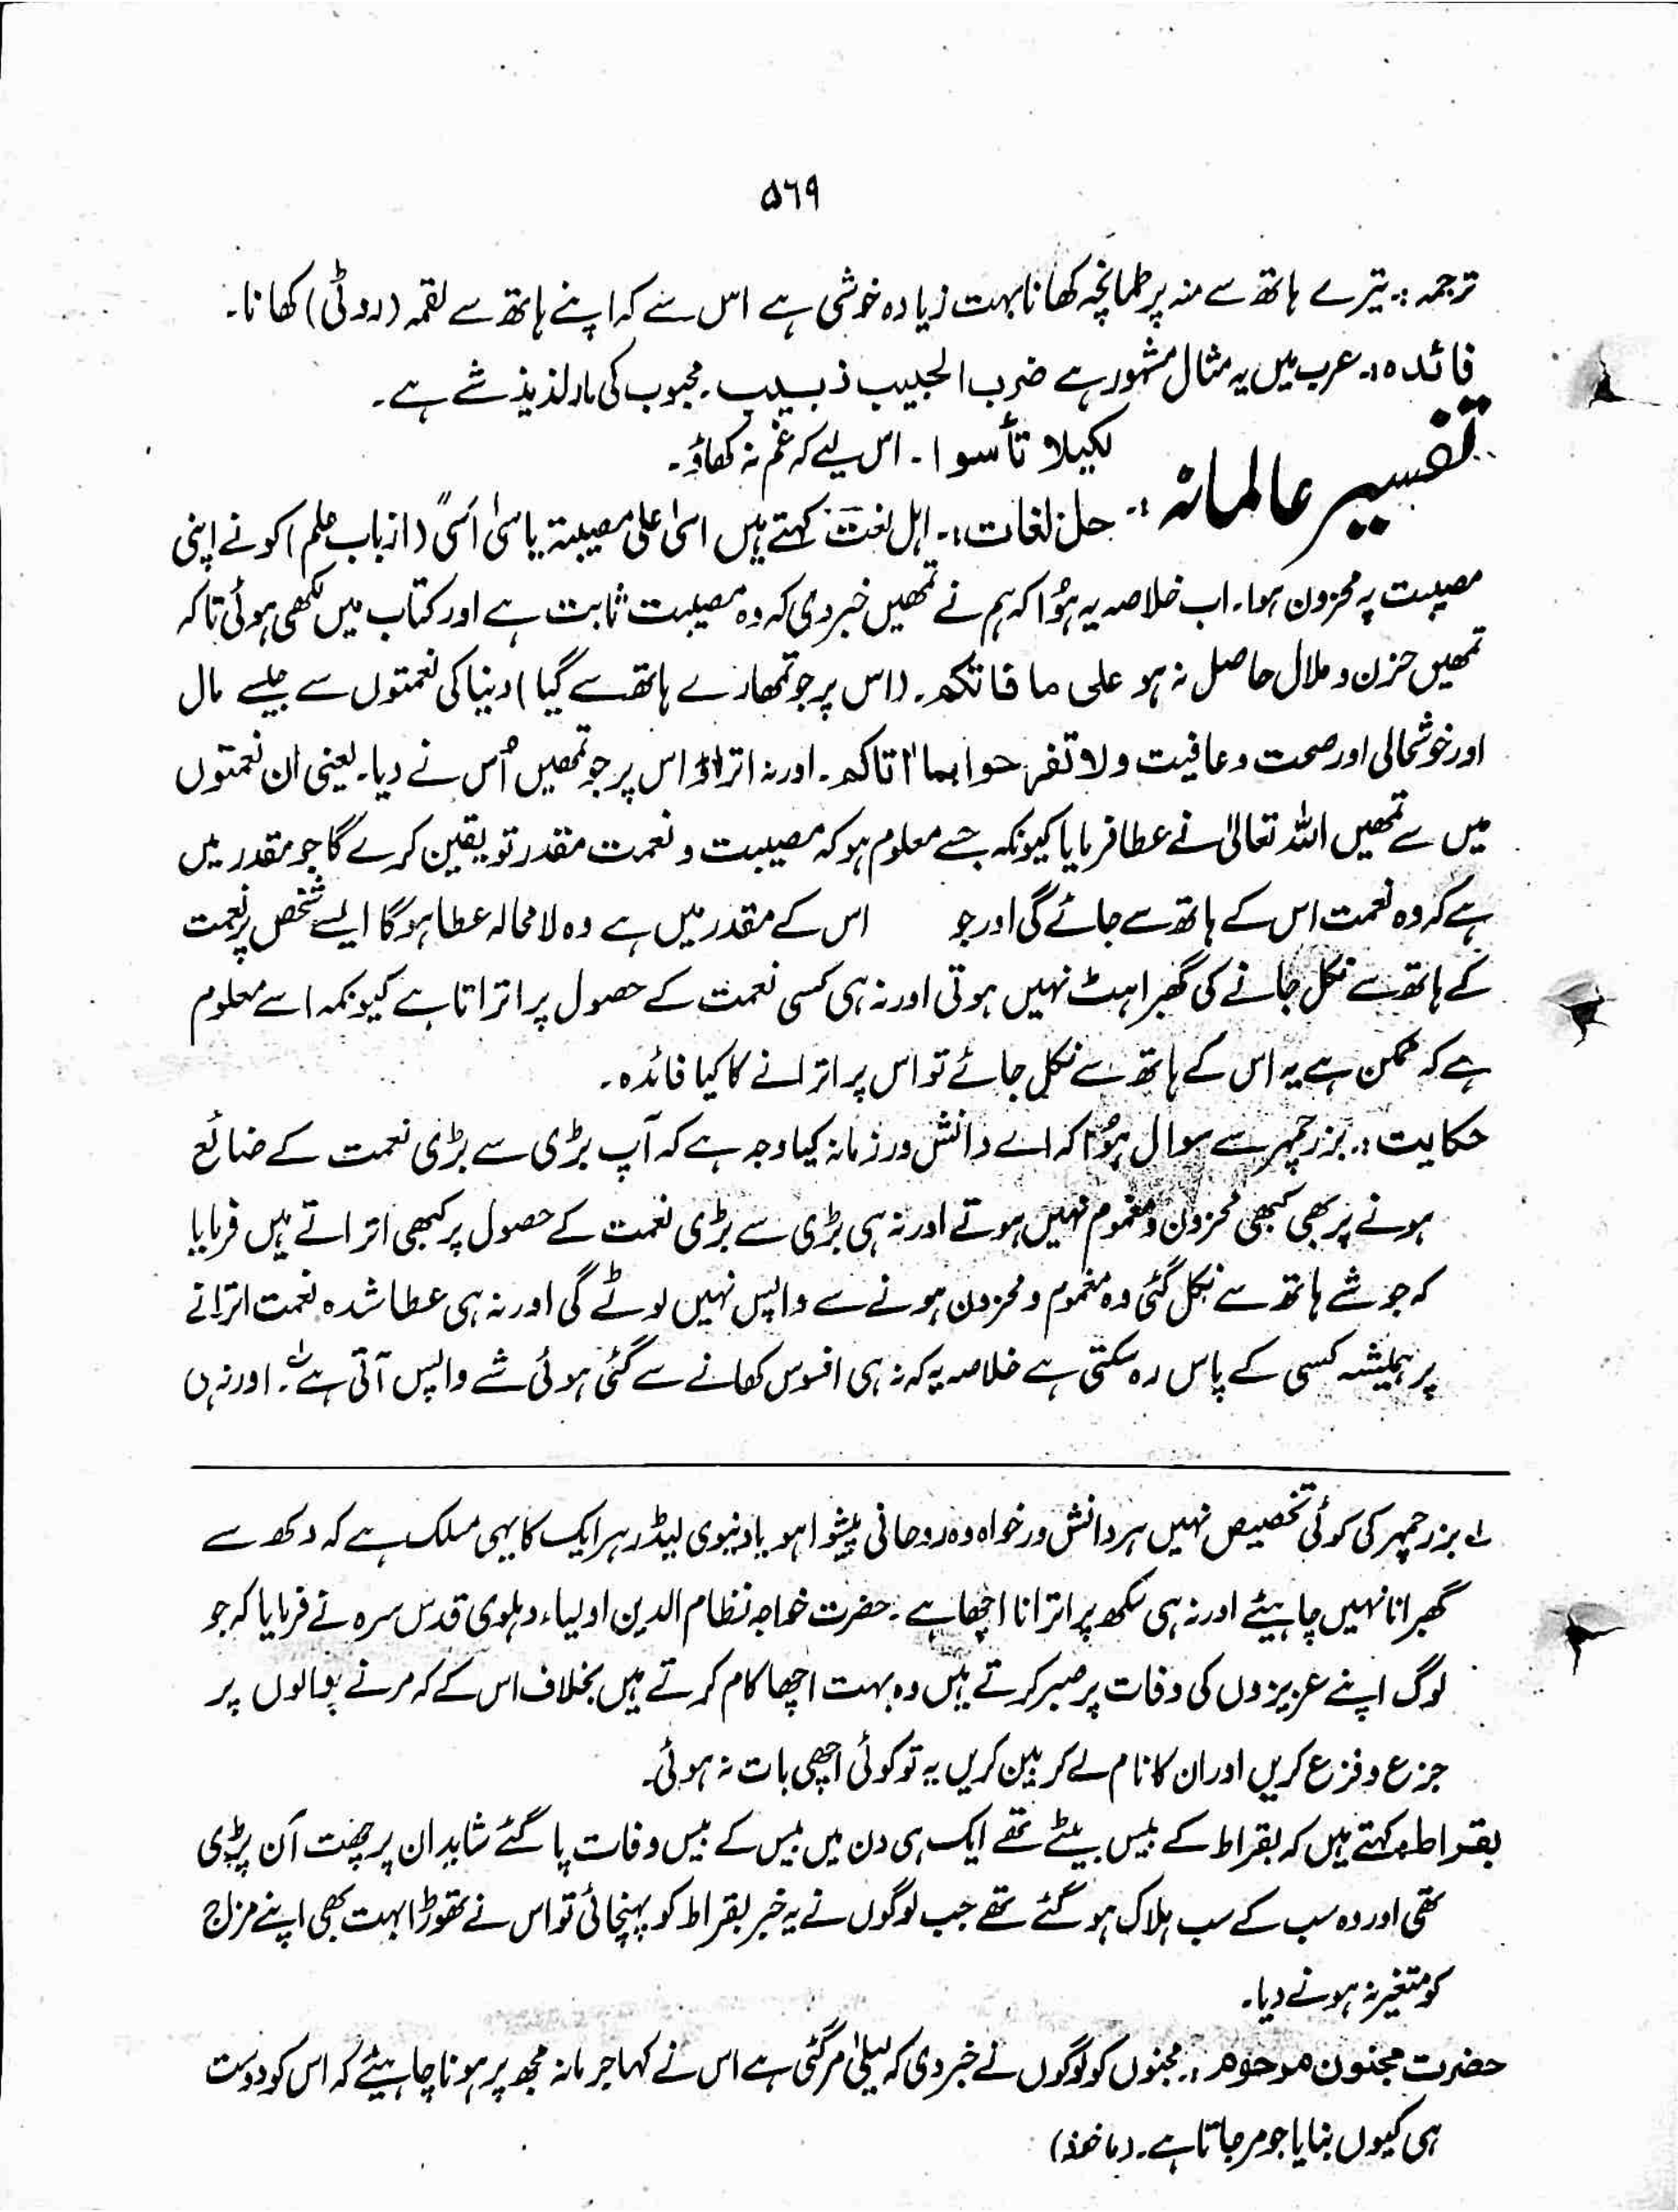 ۵۶۹
ترجمہ :۔ تیرے ہاتھ سے منہ پر طمانچہ کھانا بہت زیادہ خوشی ہے اس سے کہ اپنے ہاتھ سے لقمہ (روٹی) کھانا۔
فائدہ :۔ عرب میں یہ مثال مشہور ہے ضرب الحبیب زبیب ۔ محبوب کی مار لذیذ شے ہے ۔
لکیلا تأسوا ۔ اس لیے کہ غم نہ کھاؤ ۔
تفسیر عالمانہ :۔ حل لغات :۔ اہل لغت کہتے ہیں اسیٰ علی مصیبۃ یاسیٰ اَسیً (از باب علم) کو نے اپنی
مصیبت پہ محزون ہوا۔ اب خلاصہ یہ ہُوا کہ ہم نے تمھیں خبر دی کہ وہ مصیبت ثابت ہے اور کتاب میں لکھی ہوئی تاکہ
تمھیں حزن و ملال حاصل نہ ہو علی ما فاتکم ۔ (اس پر جو تمھارے ہاتھ سے گیا) دنیا کی نعمتوں سے جیسے مال
اور خوشحالی اور صحت و عافیت ولا تفرحوا بما اٰتاکم ۔ اور نہ اتراؤ اس پر جو تمھیں اُس نے دیا۔ یعنی ان نعمتوں
میں سے تمھیں اللہ تعالیٰ نے عطا فرمایا کیونکہ جسے معلوم ہو کہ مصیبت و نعمت مقدر تو یقین کرے گا جو مقدر میں
ہے کہ وہ نعمت اس کے ہاتھ سے جائے گی اور جو اس کے مقدر میں ہے وہ لامحالہ عطا ہوگا ایسے شخص پر نعمت
کے ہاتھ سے نکل جانے کی گھبراہٹ نہیں ہوتی اور نہ ہی کسی نعمت کے حصول پر اتراتا ہے کیونکہ اسے معلوم
ہے کہ ممکن ہے یہ اس کے ہاتھ سے نکل جائے تو اس پر اترانے کا کیا فائدہ ۔
حکایت :۔ بزرجمہر سے سوال ہُوا کہ اے دانش ور زمانہ کیا وجہ ہے کہ آپ بڑی سے بڑی نعمت کے ضائع
ہونے پر بھی کبھی محزون و مغموم نہیں ہوتے اور نہ ہی بڑی سے بڑی نعمت کے حصول پر کبھی اتراتے ہیں فرمایا
کہ جو شے ہاتھ سے نکل گئی وہ مغموم و محزون ہونے سے واپس نہیں لوٹے گی اور نہ ہی عطا شدہ نعمت اترانے
پر ہمیشہ کسی کے پاس رہ سکتی ہے خلاصہ یہ کہ نہ ہی افسوس کھانے سے گئی ہوئی شے واپس آتی ہے لہ ۔ اور نہ ہی
لہ بزرجمہر کی کوئی تخصیص نہیں ہر دانش ور خواہ وہ روحانی پیشوا ہو یا دنیوی لیڈر ہر ایک کا یہی مسلک ہے کہ دکھ سے
گھبرانا نہیں چاہیئے اور نہ ہی سکھ پر اترانا اچھا ہے ۔ حضرت خواجہ نظام الدین اولیاء دہلوی قدس سرہ نے فرمایا کہ جو
لوگ اپنے عزیزوں کی وفات پر صبر کرتے ہیں وہ بہت اچھا کام کرتے ہیں بخلاف اس کے کہ مرنے والوں پر
جزع و فزع کریں اور ان کا نام لے کر بین کریں یہ تو کوئی اچھی بات نہ ہوئی۔
بقراط : کہتے ہیں کہ بقراط کے بیس بیٹے تھے ایک ہی دن میں بیس کے بیس وفات پا گئے شاید ان پر چھت آن پڑی
تھی اور وہ سب کے سب ہلاک ہو گئے تھے جب لوگوں نے یہ خبر بقراط کو پہنچائی تو اس نے تھوڑا بہت بھی اپنے مزاج
کو متغیر نہ ہونے دیا۔
حضرت مجنون مرحوم :۔ مجنوں کو لوگوں نے خبر دی کہ لیلیٰ مر گئی ہے اس نے کہا جرمانہ مجھ پر ہونا چاہیئے کہ اس کو دوست
ہی کیوں بنایا جو مر جاتا ہے۔ (ماخوذ)